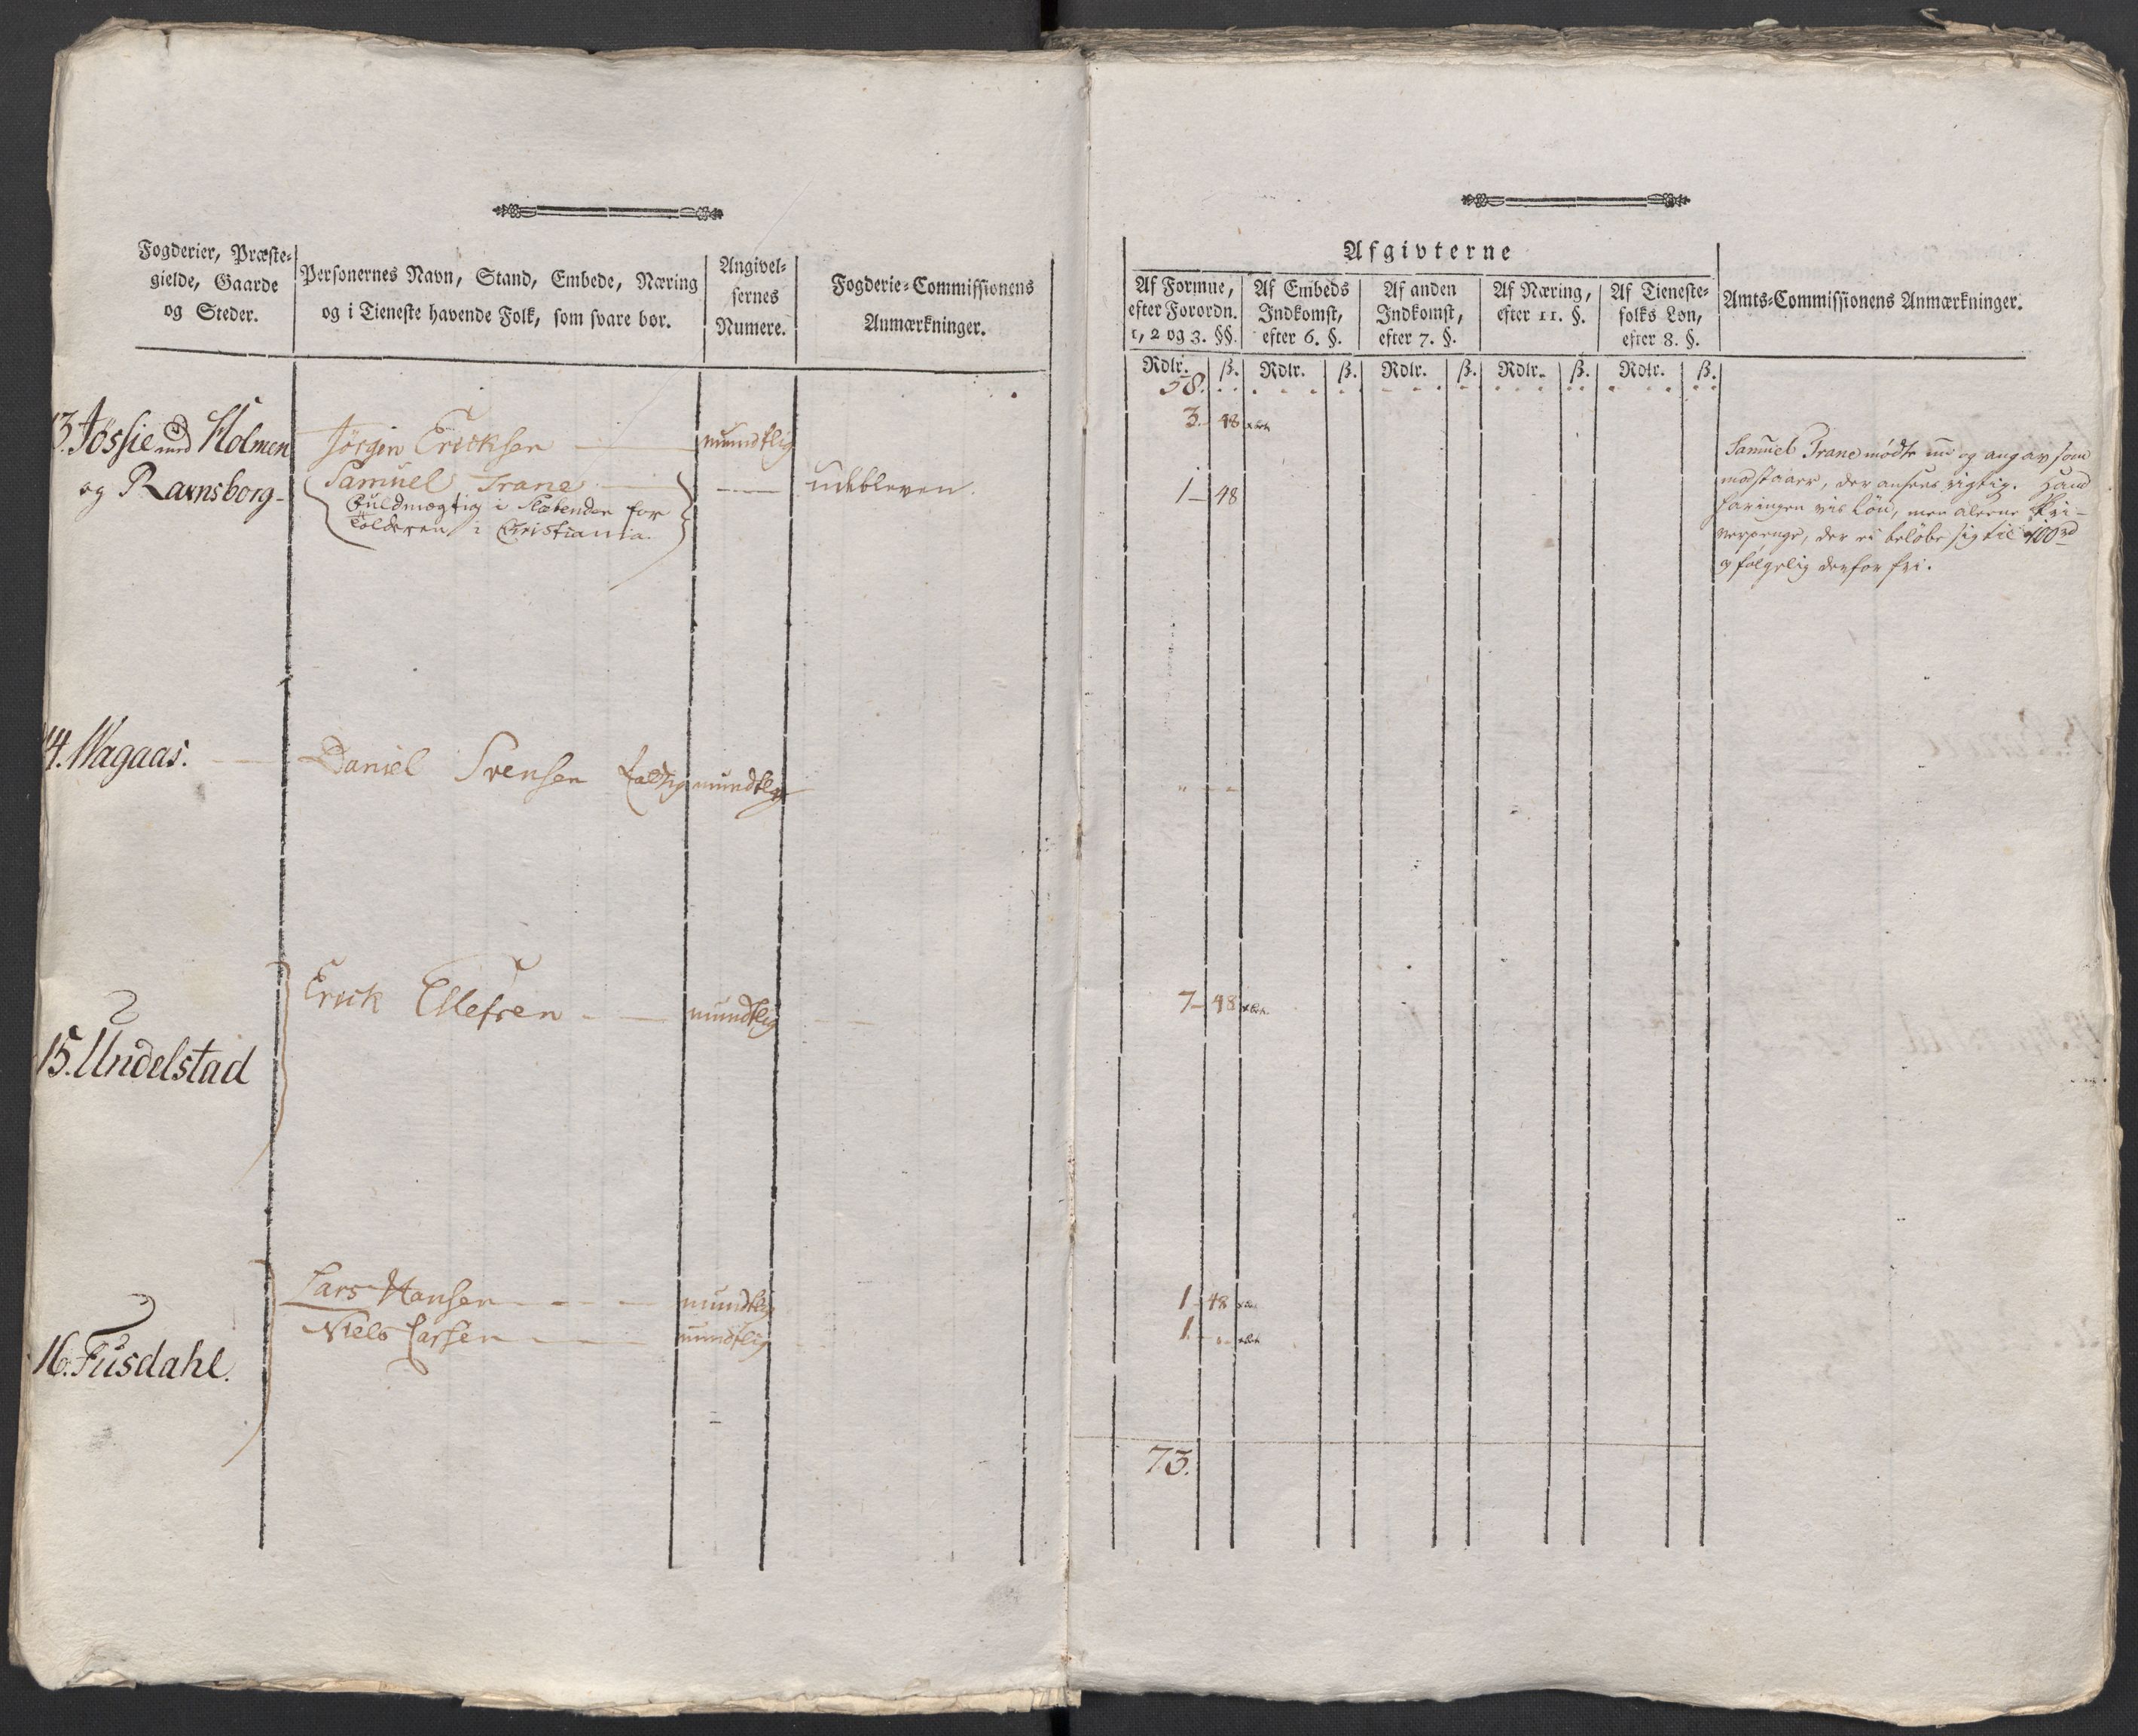 Fogderier, Præste-
gielde, Gaarde
og Steder.
Personernes Navn, Stand, Embede, Næring
og i Tieneste havende Folk, som svare bør.
Angivel-
sernes
Numere.
Fogderie-Commissionens
Anmærkninger.
13. Jössie med Holmen
og Ravnsborg-
Jörgen Ericksen mundtlig
Samuel Trane udebleven.
Fuldmægtig i Slæbenden for
Tolderen i Christiania.
14. Wagaas.
Daniel Svensen fattig mundtlig
15. Undelstad
Erick Ellefsen mundtlig
16. Fusdahl.
Lars Hansen mundtlig
Niels Larsen mundtlig
Afgivterne
Af Formue,
efter Forordn.
1, 2 og 3. §§.
Af Embeds
Indkomst,
efter 6. §.
Af anden
Indkomst,
efter 7. §.
Af Næring,
efter 11. §.
Af Tieneste-
folks Løn,
efter 8. §.
Amts-Commissionens Anmærkninger.
Rdlr. ß. Rdlr. ß. Rdlr. ß. Rdlr. ß. Rdlr. ß.
58.
3. 48
1 48
Samuel Trane mödte nu og angav som
modstaaer, der ansees rigtig. Hand
har ingen vis Lön, men alleene
der ei beløbe sig til 100 rd
og fölgelig derfor fri.
" - -
7 48
1 48
1 "
73.